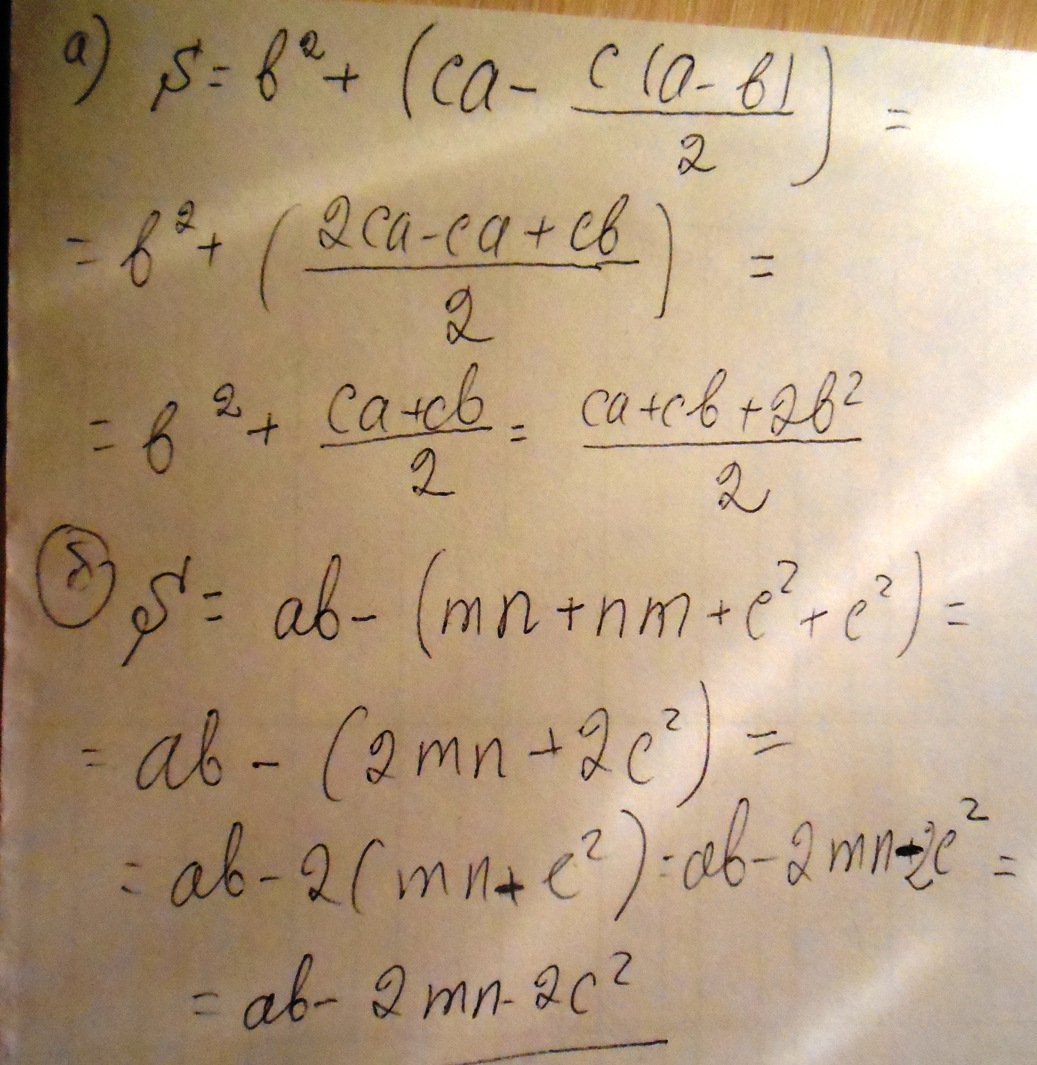 а) S = b² + (ca - c(a-b)/2) =
= b² + (2ca-ca+cb/2) =
= b² + ca+cb/2 = ca+cb+2b²/2
б) S = ab - (mn+nm+c²+c²) =
= ab - (2mn+2c²) =
= ab-2(mn+c²) = ab-2mn-2c² =
= ab-2mn-2c²